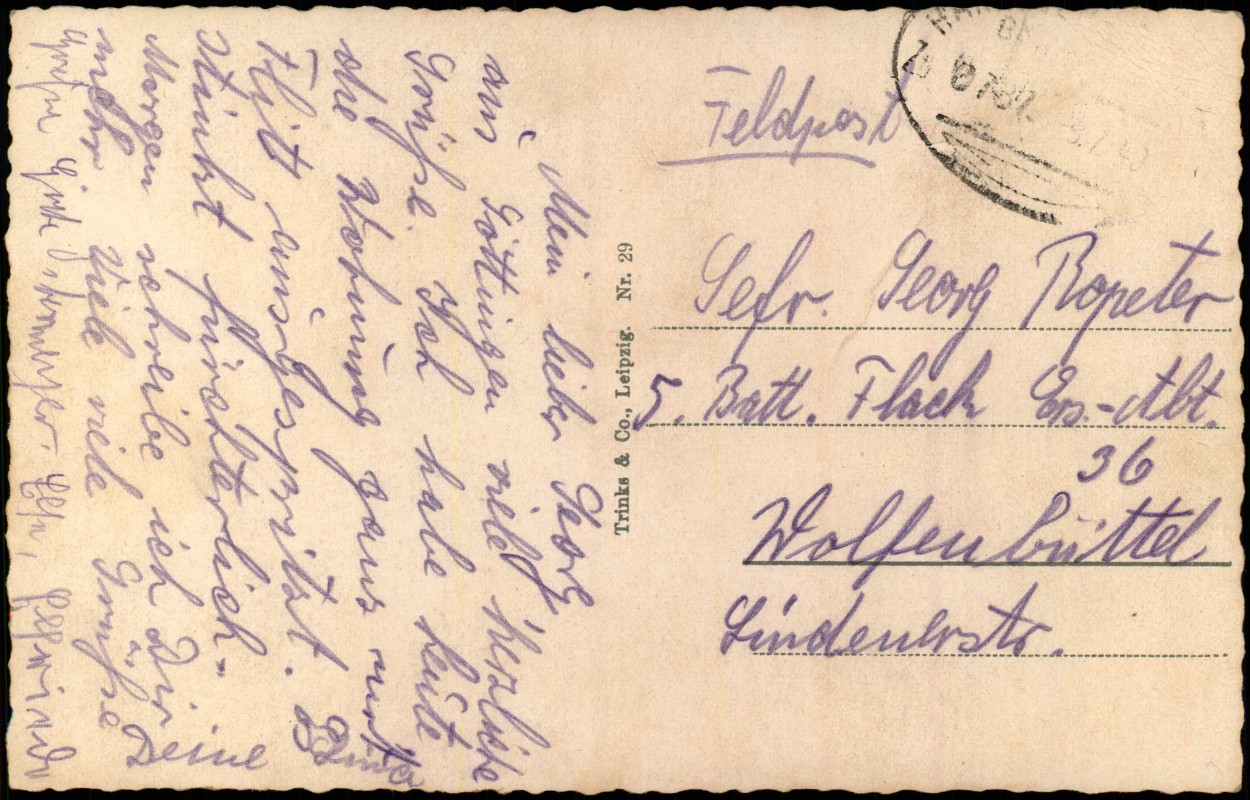 Mein lieber Georg
aus Göttingen viele herzliche
Grüße. Ich habe heute
die Wohnung ganz mit
Flitt ausgespritzt.
stinkt fürchterlich.
Morgen schreibe ich Dir
mehr. Viele viele Grüße
Deine
Trinks & Co., Leipzig. Nr. 29
Feldpost
9.7.40
Gefr. Georg Ropeter
5. Batt. Flack Ers.-Abt.
36
Wolfenbüttel
Lindenerstr.